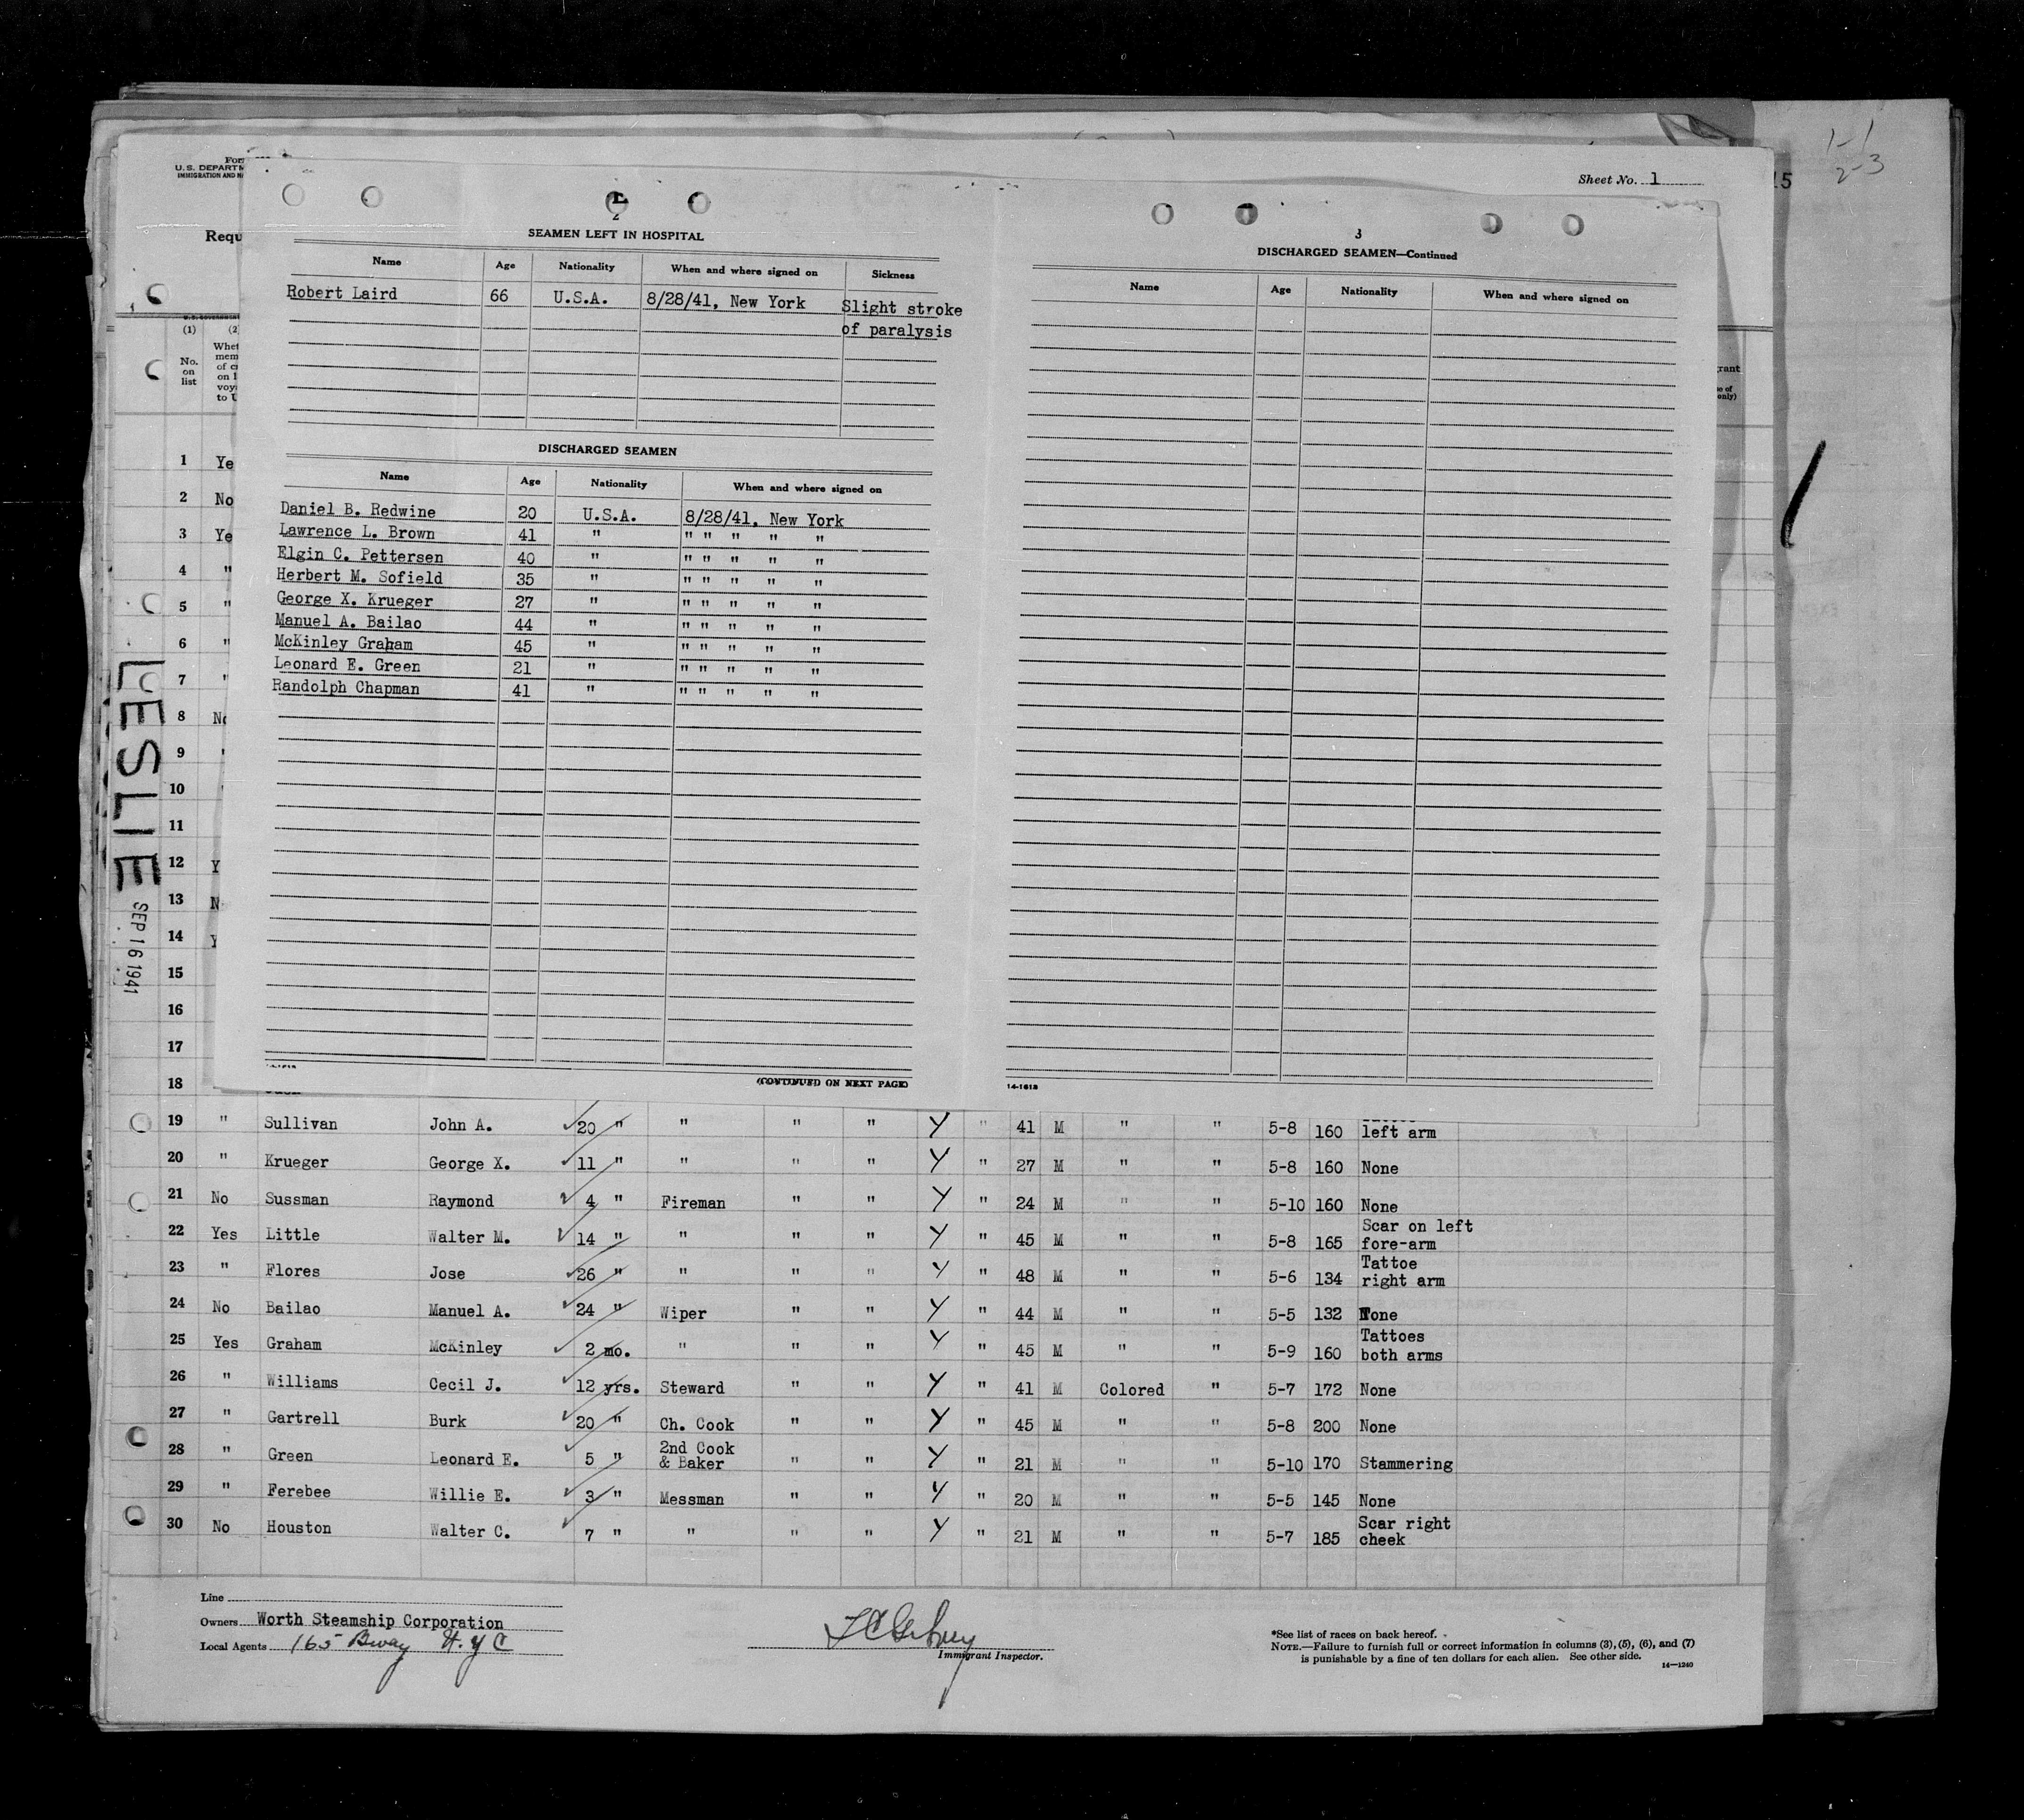 Form
U. S. DEPARTM
IMMIGRATION AND N
Sheet No. 1
15
1-1
2-3
Requ
2
SEAMEN LEFT IN HOSPITAL
Name Age Nationality When and where signed on Sickness
Robert Laird 66 U.S.A. 8/28/41, New York Slight stroke
of paralysis
DISCHARGED SEAMEN
Name Age Nationality When and where signed on
Daniel B. Redwine 20 U.S.A. 8/28/41, New York
Lawrence L. Brown 41 " " " " " "
Elgin C. Pettersen 40 " " " " " "
Herbert M. Sofield 35 " " " " " "
George X. Krueger 27 " " " " " "
Manuel A. Bailao 44 " " " " " "
McKinley Graham 45 " " " " " "
Leonard E. Green 21 " " " " " "
Randolph Chapman 41 " " " " " "
(CONTINUED ON NEXT PAGE)
3
DISCHARGED SEAMEN—Continued
Name Age Nationality When and where signed on
14-1618
(1) (2)
No. on list
Whet
mem
of c
on l
voy
to U
rant
e of
only)
1 Ye
2 No
3 Ye
4 "
5 "
6 "
7 "
8 No
9 "
10
11
12 Y
13 N
14 Y
15
16
17
18
LESLIE
SEP 16 1941
19 " Sullivan John A. 20 " " " " Y " 41 M " " 5-8 160 left arm
20 " Krueger George X. 11 " " " " Y " 27 M " " 5-8 160 None
21 No Sussman Raymond 4 " Fireman " " Y " 24 M " " 5-10 160 None
22 Yes Little Walter M. 14 " " " " Y " 45 M " " 5-8 165 Scar on left
fore-arm
23 " Flores Jose 26 " " " " Y " 48 M " " 5-6 134 Tattoe
right arm
24 No Bailao Manuel A. 24 " Wiper " " Y " 44 M " " 5-5 132 None
25 Yes Graham McKinley 2 mo. " " " Y " 45 M " " 5-9 160 Tattoes
both arms
26 " Williams Cecil J. 12 yrs. Steward " " Y " 41 M Colored " 5-7 172 None
27 " Gartrell Burk 20 " Ch. Cook " " Y " 45 M " " 5-8 200 None
28 " Green Leonard E. 5 " 2nd Cook
& Baker " " Y " 21 M " " 5-10 170 Stammering
29 " Ferebee Willie E. 3 " Messman " " Y " 20 M " " 5-5 145 None
30 No Houston Walter C. 7 " " " " Y " 21 M " " 5-7 185 Scar right
cheek
Line
Owners Worth Steamship Corporation
Local Agents 165 Bway N.Y C
Immigrant Inspector.
*See list of races on back hereof.
NOTE.—Failure to furnish full or correct information in columns (3), (5), (6), and (7)
is punishable by a fine of ten dollars for each alien. See other side.
14—1240